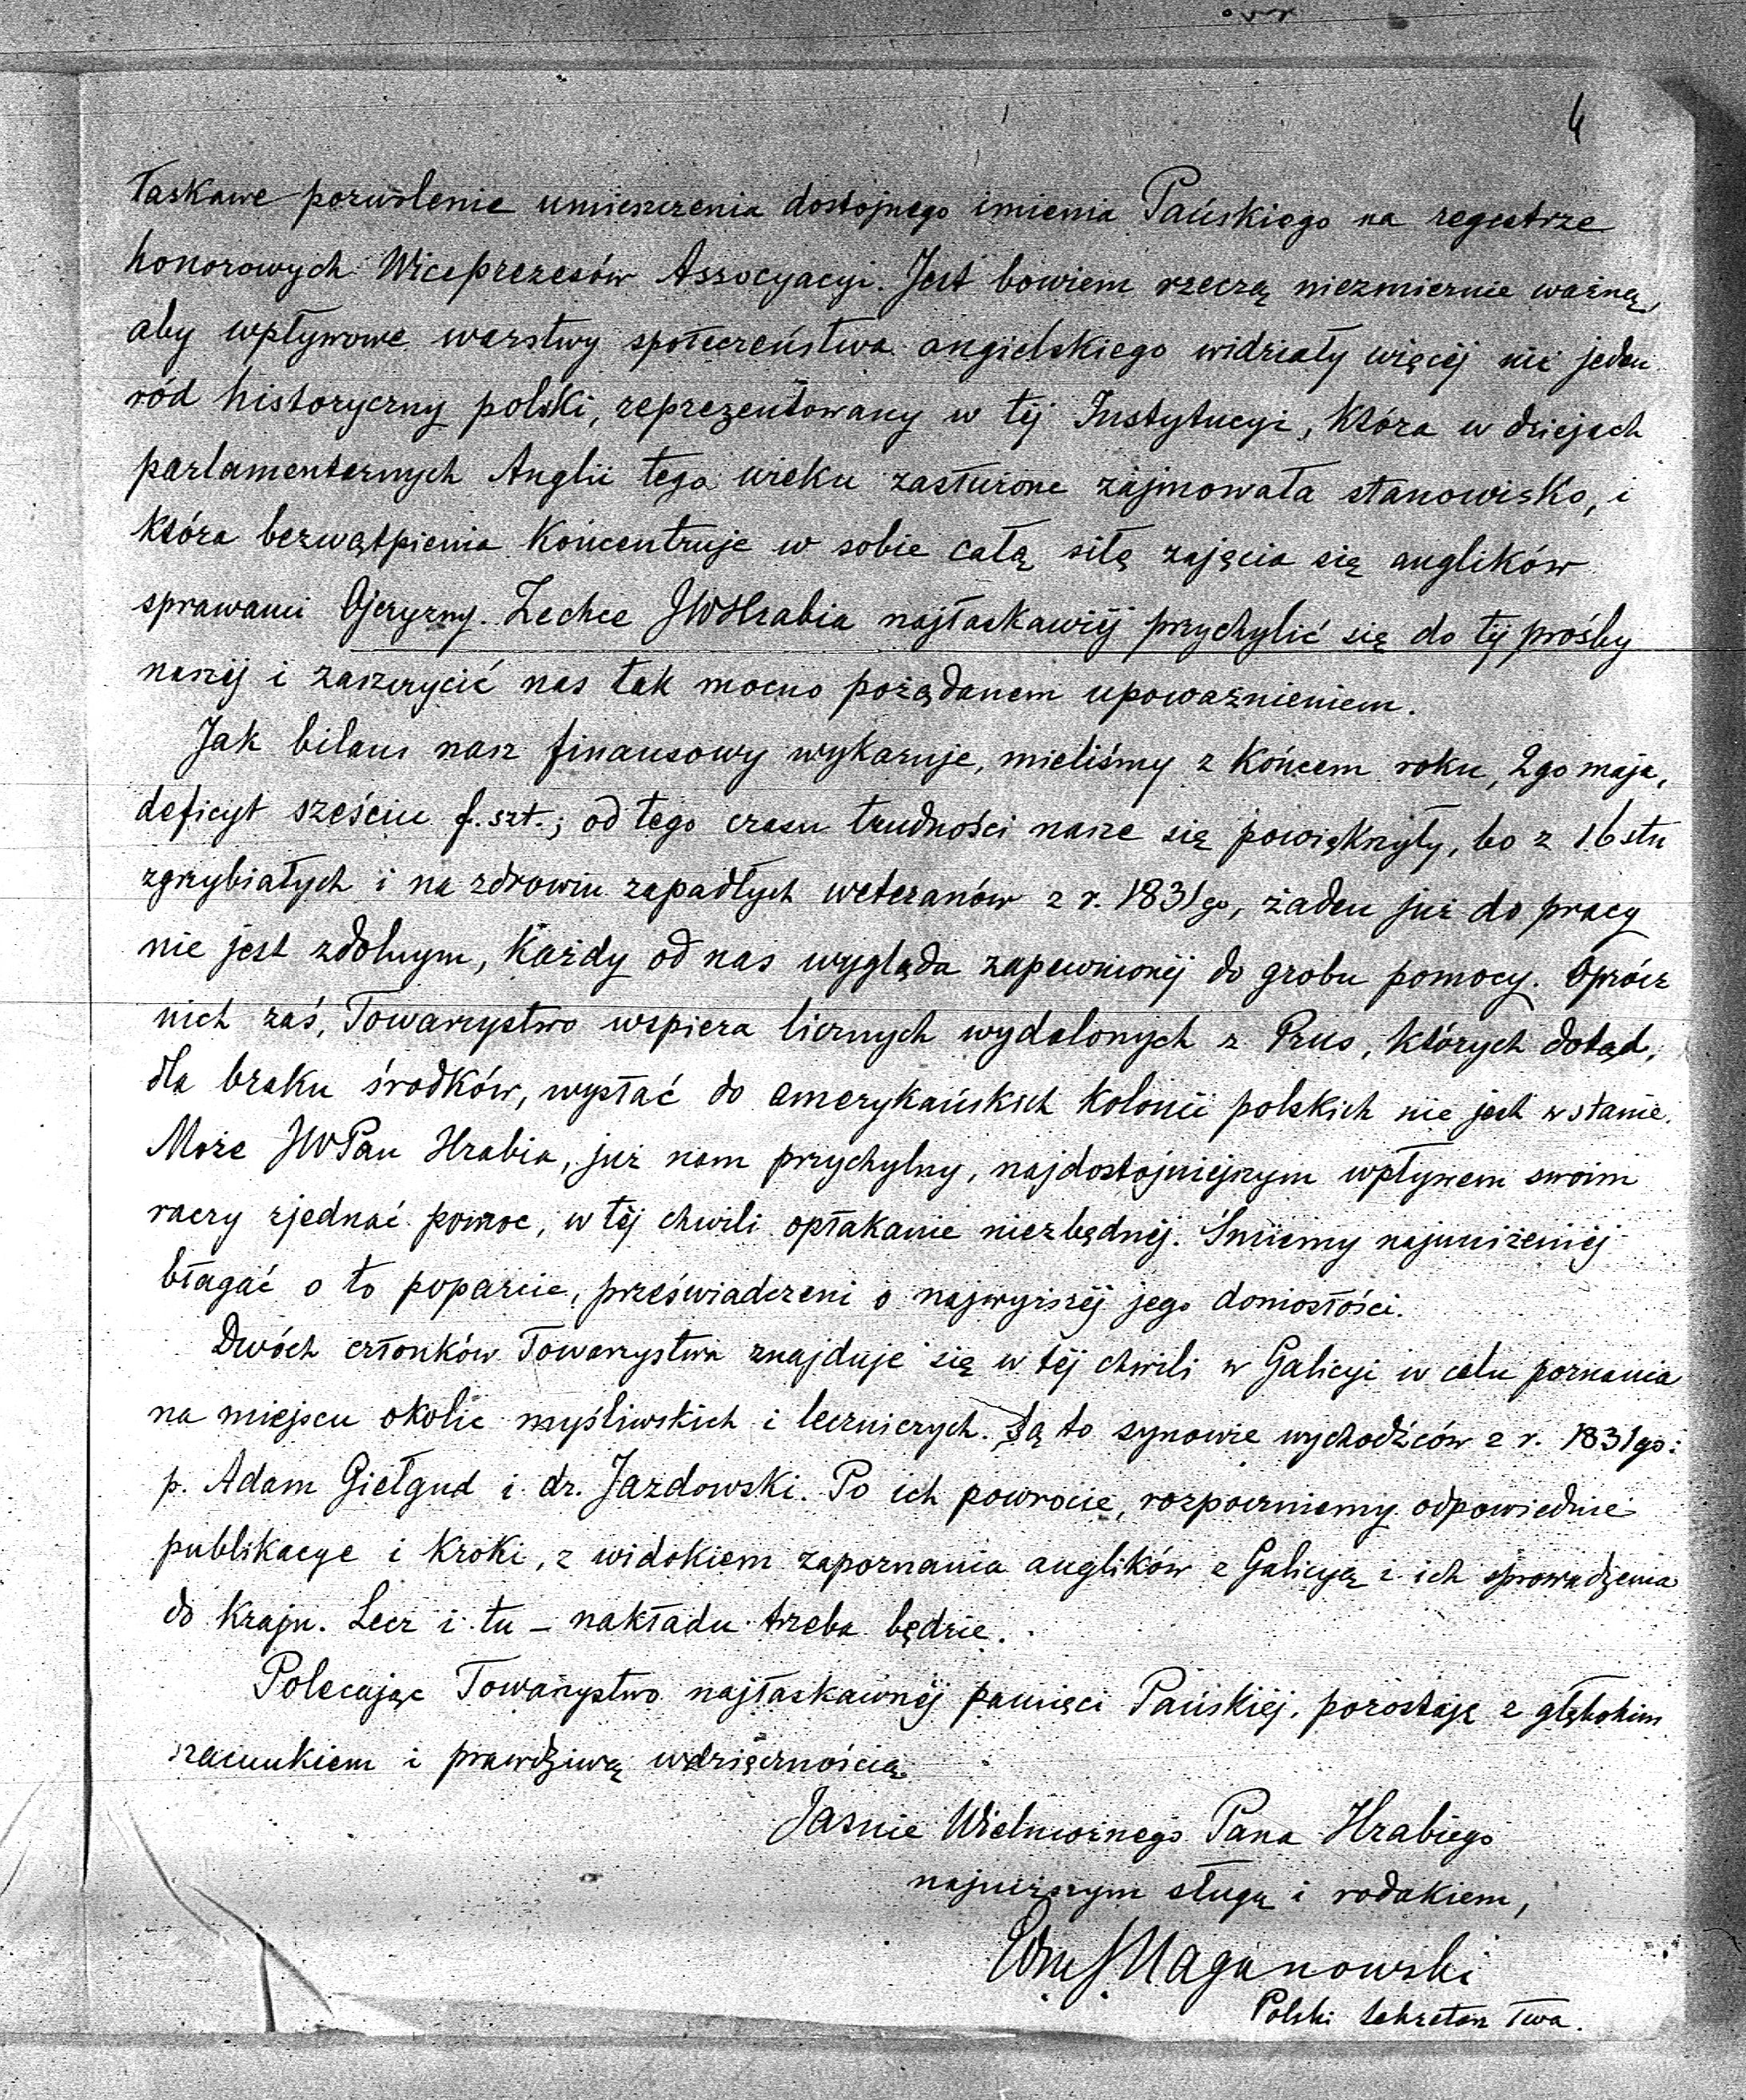 4
łaskawe pozwolenie umieszczenia dostojnego imienia Pańskiego na regestrze
honorowych Wiceprezesów Assocyacyi. Jest bowiem rzeczą niezmiernie ważną,
aby wpływowe warstwy społeczeństwa angielskiego widziały więcéj niż jeden
ród historyczny polski, reprezentowany w téj Instytucyi, która w dziejach
parlamentarnych Anglii tego wieku zasłużone zajmowała stanowisko, i
która bezwątpienia koncentruje w sobie całą siłę zajęcia się anglików
sprawami Ojczyzny. Zechce JWHrabia najłaskawiéj przychylić się do téj prośby
naszéj i zaszczycić nas tak mocno pożądanem upoważnieniem.
Jak bilans nasz finansowy wykazuje, mieliśmy z końcem roku, 2go maja,
deficyt sześciu f. szt.; od tego czasu trudności nasze się powiększyły, bo z 16stu
zgrzybiałych i na zdrowiu zapadłych weteranów z r. 1831go, żaden już do pracy
nie jest zdolnym, każdy od nas wygląda zapewnionéj do grobu pomocy. Oprócz
nich zaś, Towarzystwo wspiera licznych wydalonych z Prus, których dotąd,
dla braku środków, wysłać do amerykańskich kolonii polskich nie jest w stanie.
Może JWPan Hrabia, już nam przychylny, najdostojniejszym wpływem swoim
raczy zjednać pomoc, w téj chwili opłakanie niezbędnéj. Śmiemy najuniżeniéj
błagać o to poparcie, przeświadczeni o najwyższéj jego doniosłości.
Dwóch członków Towarzystwa znajduje się w téj chwili w Galicyi w celu poznania
na miejscu okolic myśliwskich i leczniczych. Są to synowie wychodźców z r. 1831go:
p. Adam Giełgud i dr. Jazdowski. Po ich powrocie, rozpoczniemy odpowiednie
publikacye i kroki, z widokiem zapoznania anglików z Galicyą i ich sprowadzenia
do kraju. Lecz i tu – nakładu trzeba będzie.
Polecając Towarzystwo najłaskawszéj pamięci Pańskiéj, pozostaję z głębokim
szacunkiem i prawdziwą wdzięcznością
Jaśnie Wielmożnego Pana Hrabiego
najniższym sługą i rodakiem,
Edm S Naganowski
Polski Sekretarz Twa.